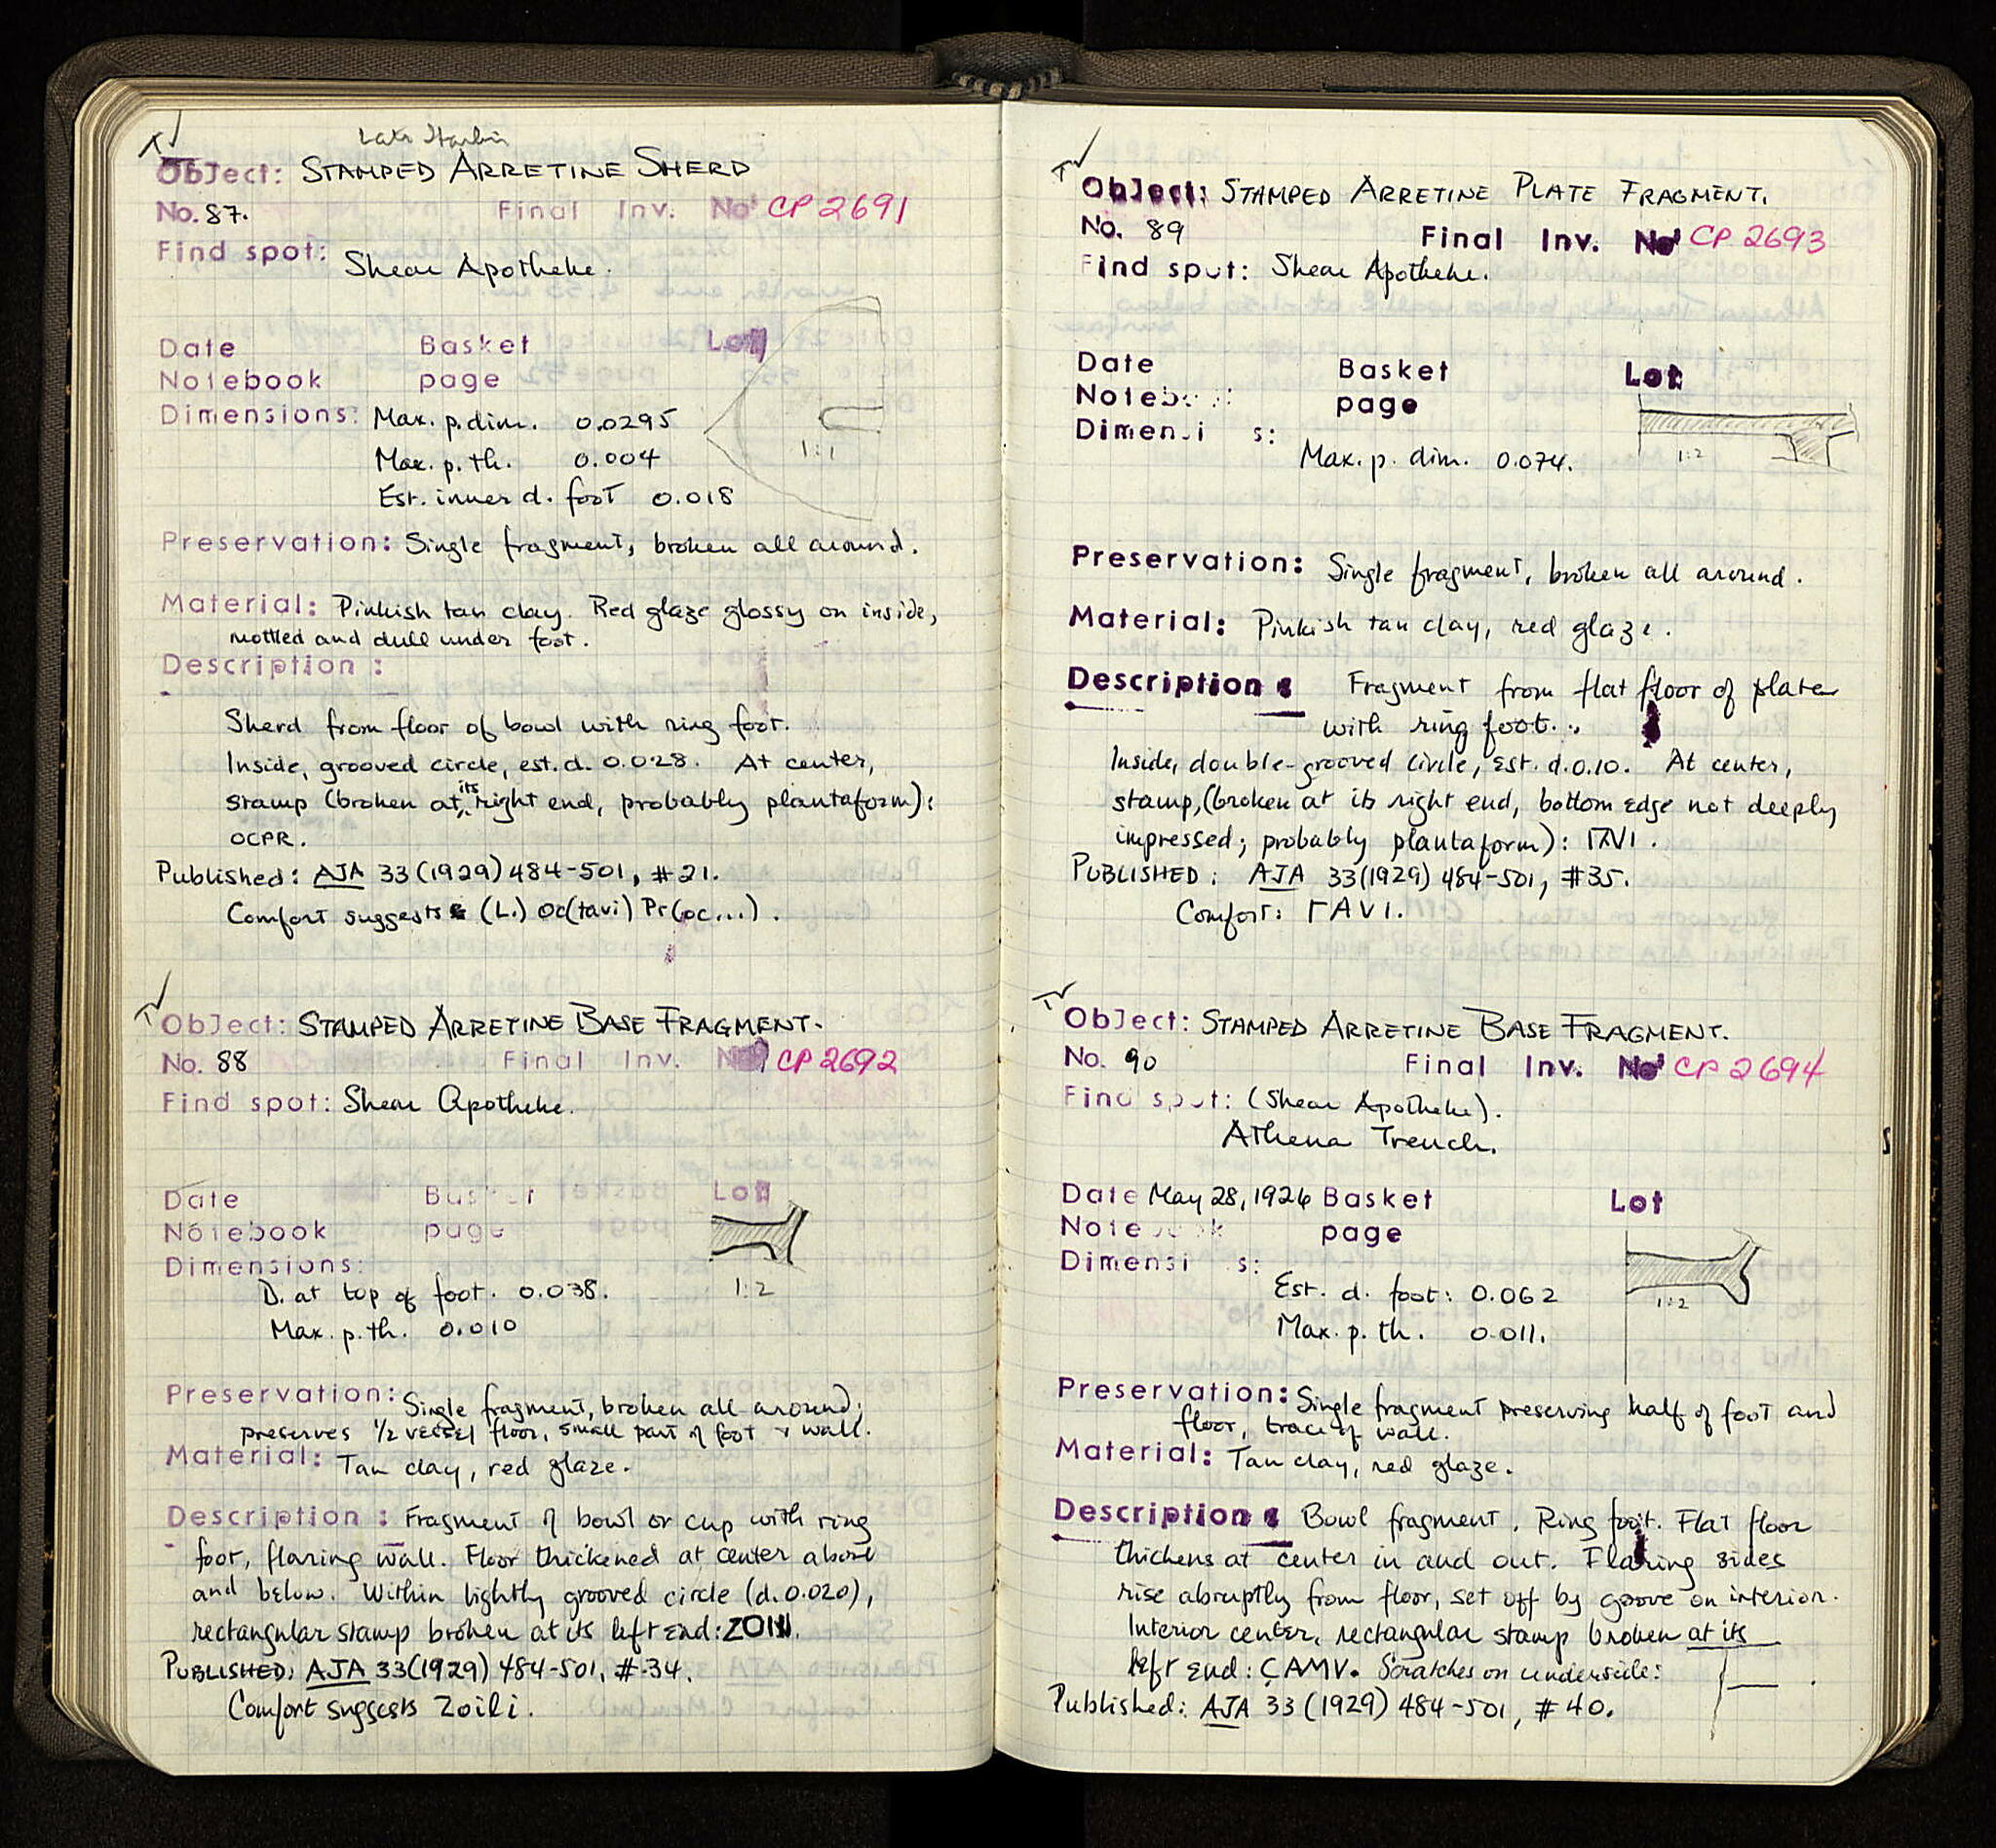 Object: STAMPED ARRETINE SHERD
No. 87. Final Inv. No CP 2691
Find spot: Shear Apotheke.
Date Basket Lot
Notebook page
Dimensions: Max. p. dim. 0.0295
Max. p. th. 0.004
Est. inner d. foot 0.018
1:1
Preservation: Single fragment, broken all around.
Material: Pinkish tan clay. Red glaze glossy on inside,
mottled and dull under foot.
Description:
Sherd from floor of bowl with ring foot.
Inside, grooved circle, est. d. 0.028. At center,
stamp (broken at its right end, probably plantaform):
OCPR.
Published: AJA 33 (1929) 484-501, #21.
Comfort suggests (L.) Oc(tavi) Pr(oc...).
Object: STAMPED ARRETINE BASE FRAGMENT.
No. 88 Final Inv. No CP 2692
Find spot: Shear Apotheke.
Date Basket Lot
Notebook page
Dimensions:
D. at top of foot. 0.038.
1:2
Max. p. th. 0.010
Preservation: Single fragment, broken all around;
preserves 1/2 vessel floor, small part of foot + wall.
Material: Tan clay, red glaze.
Description: Fragment of bowl or cup with ring
foot, flaring wall. Floor thickened at center above
and below. Within lightly grooved circle (d. 0.020),
rectangular stamp broken at its left end:
PUBLISHED: AJA 33 (1929) 484-501, #34.
Comfort suggests Zoili.
Object: STAMPED ARRETINE PLATE FRAGMENT.
No. 89 Final Inv. No CP 2693
Find spot: Shear Apotheke.
Date Basket Lot
Notebook page
Dimensions:
Max. p. dim. 0.074.
1:2
Preservation: Single fragment, broken all around.
Material: Pinkish tan clay, red glaze.
Description: Fragment from flat floor of plate
with ring foot.
Inside, double-grooved circle, est. d. 0.10. At center,
stamp, (broken at its right end, bottom edge not deeply
impressed; probably plantaform):
PUBLISHED: AJA 33 (1929) 484-501, #35.
Comfort: ΓAVI.
Object: STAMPED ARRETINE BASE FRAGMENT.
No. 90 Final Inv. No CP 2694
Find spot: (Shear Apotheke).
Athena Trench.
Date May 28, 1926 Basket Lot
Notebook page
Dimensions:
Est. d. foot: 0.062
1:2
Max. p. th. 0.011.
Preservation: Single fragment preserving half of foot and
floor, trace of wall.
Material: Tan clay, red glaze.
Description: Bowl fragment. Ring foot. Flat floor
thickens at center in and out. Flaring sides
rise abruptly from floor, set off by groove on interior.
Interior center, rectangular stamp broken at its
left end: CAMV. Scratches on underside:
Published: AJA 33 (1929) 484-501, #40.